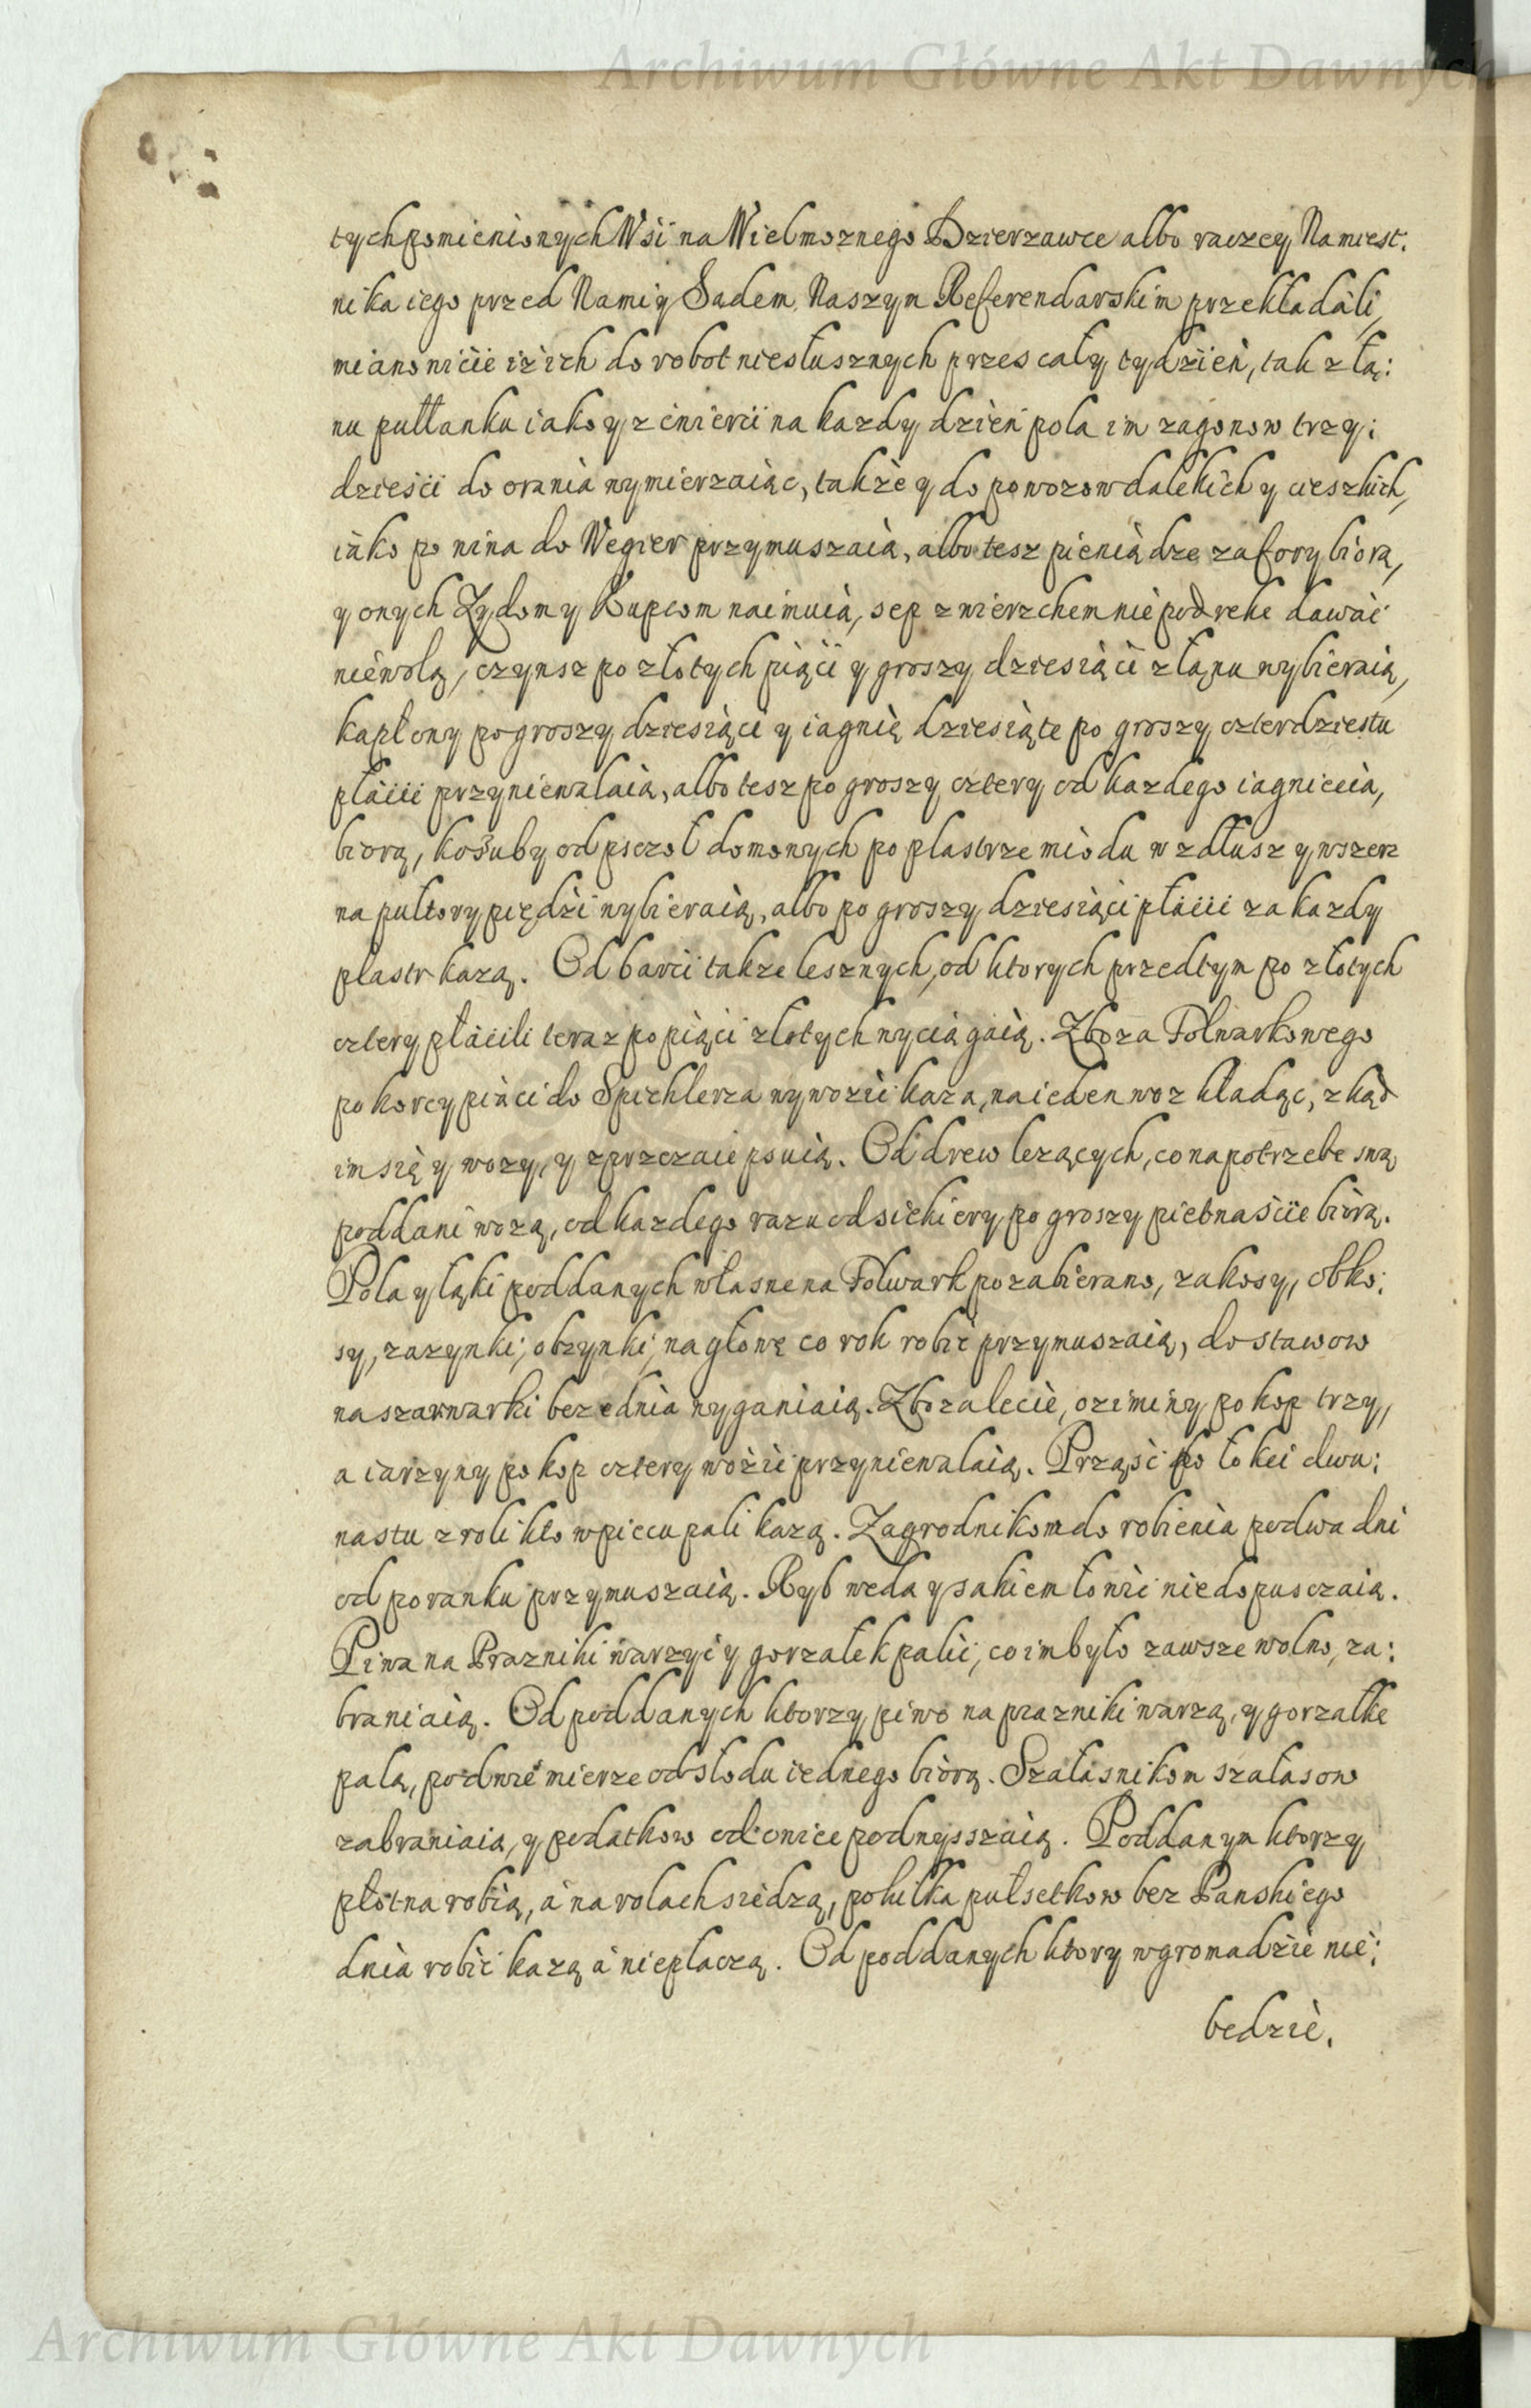 Archiwum Główne Akt Dawnych
tych pomienionych Wsi na Wielmoznego Dzierzawce albo raczey Namiest:
nika iego przed Nami y Sadem Naszym Referendarskim przekładali,
mianowicie iż ich do robot niesłusznych przes cały tydzień, tak z ła:
nu pułłanku iako y z cwierci na kazdy dzień pola im zagonow trzy:
dzieści do orania wymierzaiąc, także y do powozow dalekich y cieszkich,
iako po wina do Wegier przymuszaią, albo tesz pieniądze za fory biorą,
y onych Zydom y Kupcom naimuią, sep z wierzchem nie pod reke dawać
niewolą, czynsz po złotych piąci y groszy dziesiąci z łanu wybieraią,
kapłony po groszy dziesiąci y iagnię dziesiąte po groszy czterdziestu
płacic przyniewalaią, albo tesz po groszy cztery od kazdego iagniecia,
biorą, kośuby od pszczoł domowych po plastrze miodu w zdłusz y wszerz
na pułtory piędzi wybieraią, albo po groszy dziesiąci płacic za kazdy
plastr kazą. Od barci takze lesznych, od ktorych przedtym po złotych
cztery płacili teraz po piąci złotych wyciągaią. Zboza Folwarkowego
po korcy piąci do Spichlerza wywozic kazą, na ieden woz kładąc, z kąd
im się y wozy, y zprzezaie psuią. Od drew lezących, co na potrzebe swą
poddani wozą, od kazdego razu od siekiery po groszy pietnaście biorą.
Pola y łąki poddanych własne na Folwark pozabierano, zakosy, obko:
sy, zazynki, obzynki, na głowę co rok robic przymuszaią, do stawow
na szarwarki bez ednia wyganiaią. Zboza lecie, oziminy po kop trzy,
a iarzyny po kop cztery wozic przyniewalaią. Prząsć po łokci dwu:
nastu z roli kto w piecu pali kazą. Zagrodnikom do robienia po dwa dni
od poranku przymuszaią. Ryb wedą y sakiem łowic niedopusczaią.
Piwa na Prazniki warzyć y gorzałek palic, co im było zawsze wolno, za:
braniaią. Od poddanych ktorzy piwo na prazniki warzą, y gorzałke
palą, po dwie mierze od słodu iednego biorą. Szałasnikom szałasow
zabraniaią, y podatkow od owiec podwysszaią. Poddanym ktorzy
płotna robią, a na rolach siedzą, po kilka pułsetkow bez Panskiego
dnia robic kazą a nie płaczą. Od poddanych ktory w gromadzie nie:
bedzie.
Archiwum Główne Akt Dawnych